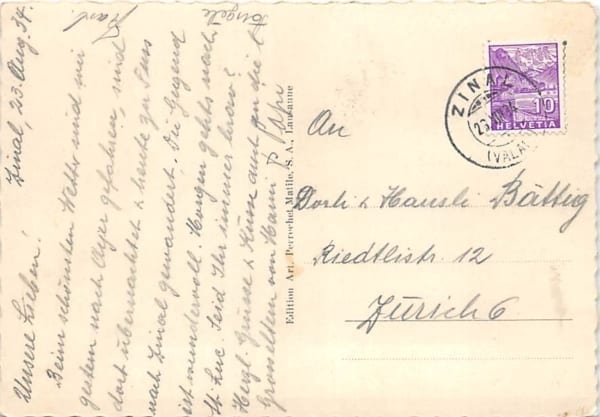 Zinal, 23. Aug. 34.
Unsere Lieben!
Beim schönsten Wetter sind wir
gestern nach Ayer gefahren, sind
dort übernachtet & heute zu Fuss
nach Zinal gewandert. Die Gegend
ist wundervoll. Morgen gehts nach
St. Luc. Seid Ihr immer brav?
Herzl. Grüsse & Küsse auch an die l.
Grosseltern von Mami & Papi
Edition Art. Perrochet Matile, S. A., Lausanne
ZINAL
(VALAIS)
10
HELVETIA
An
Dorli & Hansli Bättig
Riedtlistr. 12
Zürich 6